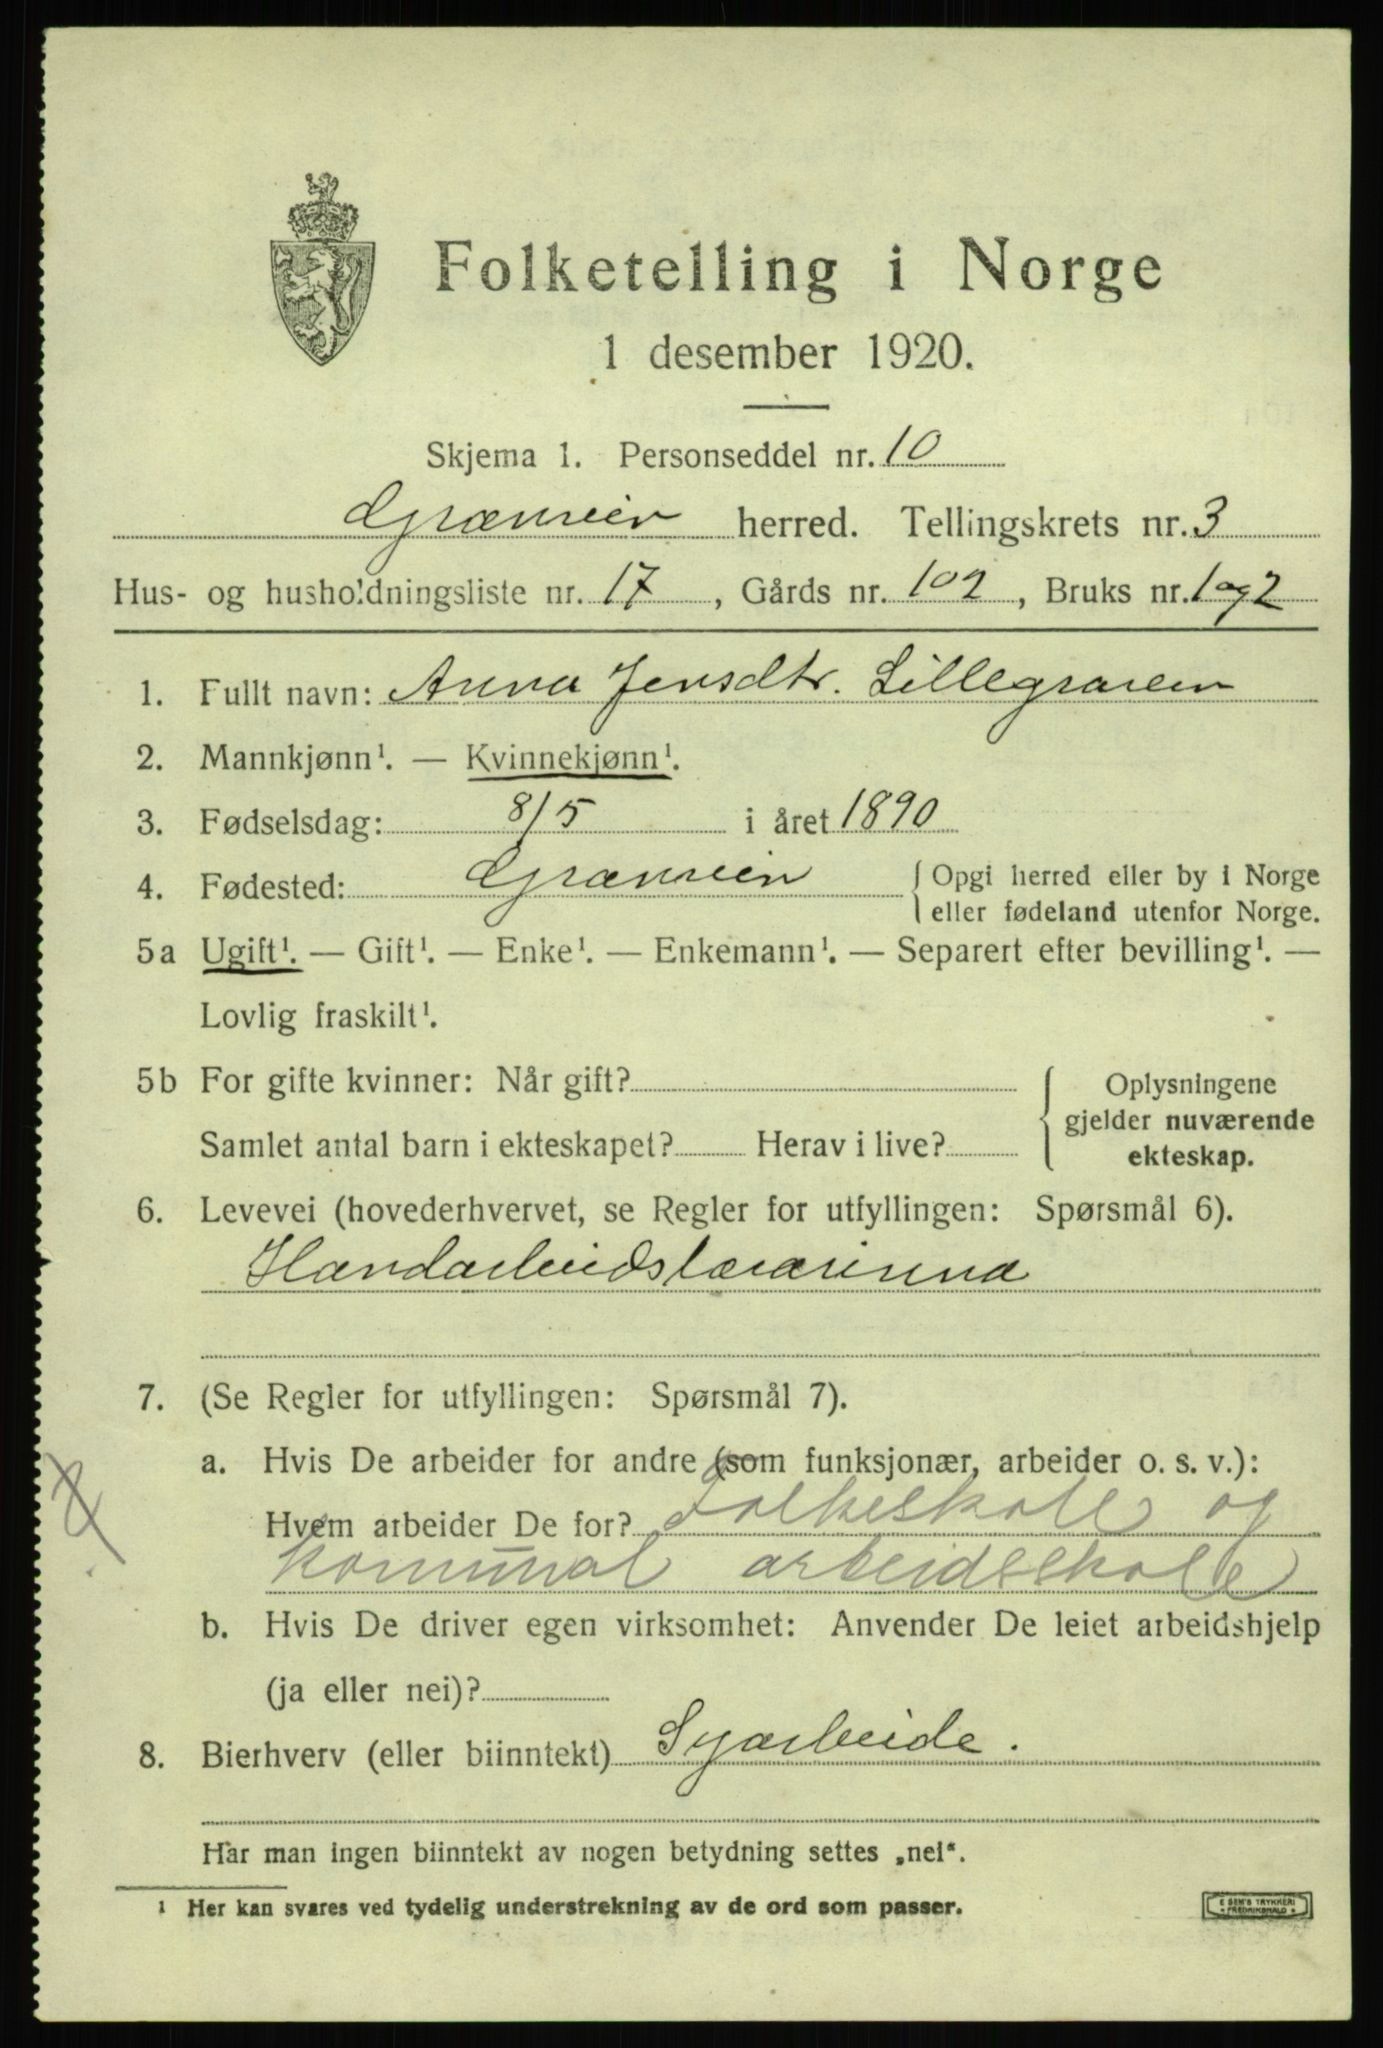 Folketelling i Norge
1 desember 1920.
Skjema 1. Personseddel nr. 10
Granvin herred. Tellingskrets nr. 3
Hus- og husholdningsliste nr. 17, Gårds nr. 102, Bruks nr. 1 og 2
1. Fullt navn: Anna Jensdtr. Lillegraven
2. Mannkjønn¹. — Kvinnekjønn¹.
3. Fødselsdag: 8/5 i året 1890
4. Fødested: Granvin { Opgi herred eller by i Norge
eller fødeland utenfor Norge.
5a Ugift¹. — Gift¹. — Enke¹. — Enkemann¹. — Separert efter bevilling¹. —
Lovlig fraskilt¹.
5b For gifte kvinner: Når gift? { Oplysningene
gjelder nuværende
Samlet antal barn i ekteskapet? Herav i live? ekteskap.
6. Levevei (hovederhvervet, se Regler for utfyllingen: Spørsmål 6).
Handarbeidslærarinna
7. (Se Regler for utfyllingen: Spørsmål 7).
a. Hvis De arbeider for andre (som funksjonær, arbeider o. s. v.):
Hvem arbeider De for? Folkeskole og
komunal arbeidsskole
b. Hvis De driver egen virksomhet: Anvender De leiet arbeidshjelp
(ja eller nei)?
8. Bierhverv (eller biinntekt) Syarbeide.
Har man ingen biinntekt av nogen betydning settes „nei“.
¹ Her kan svares ved tydelig understrekning av de ord som passer.
E SEM'S TRYKKERI
FREDRIKSHALD